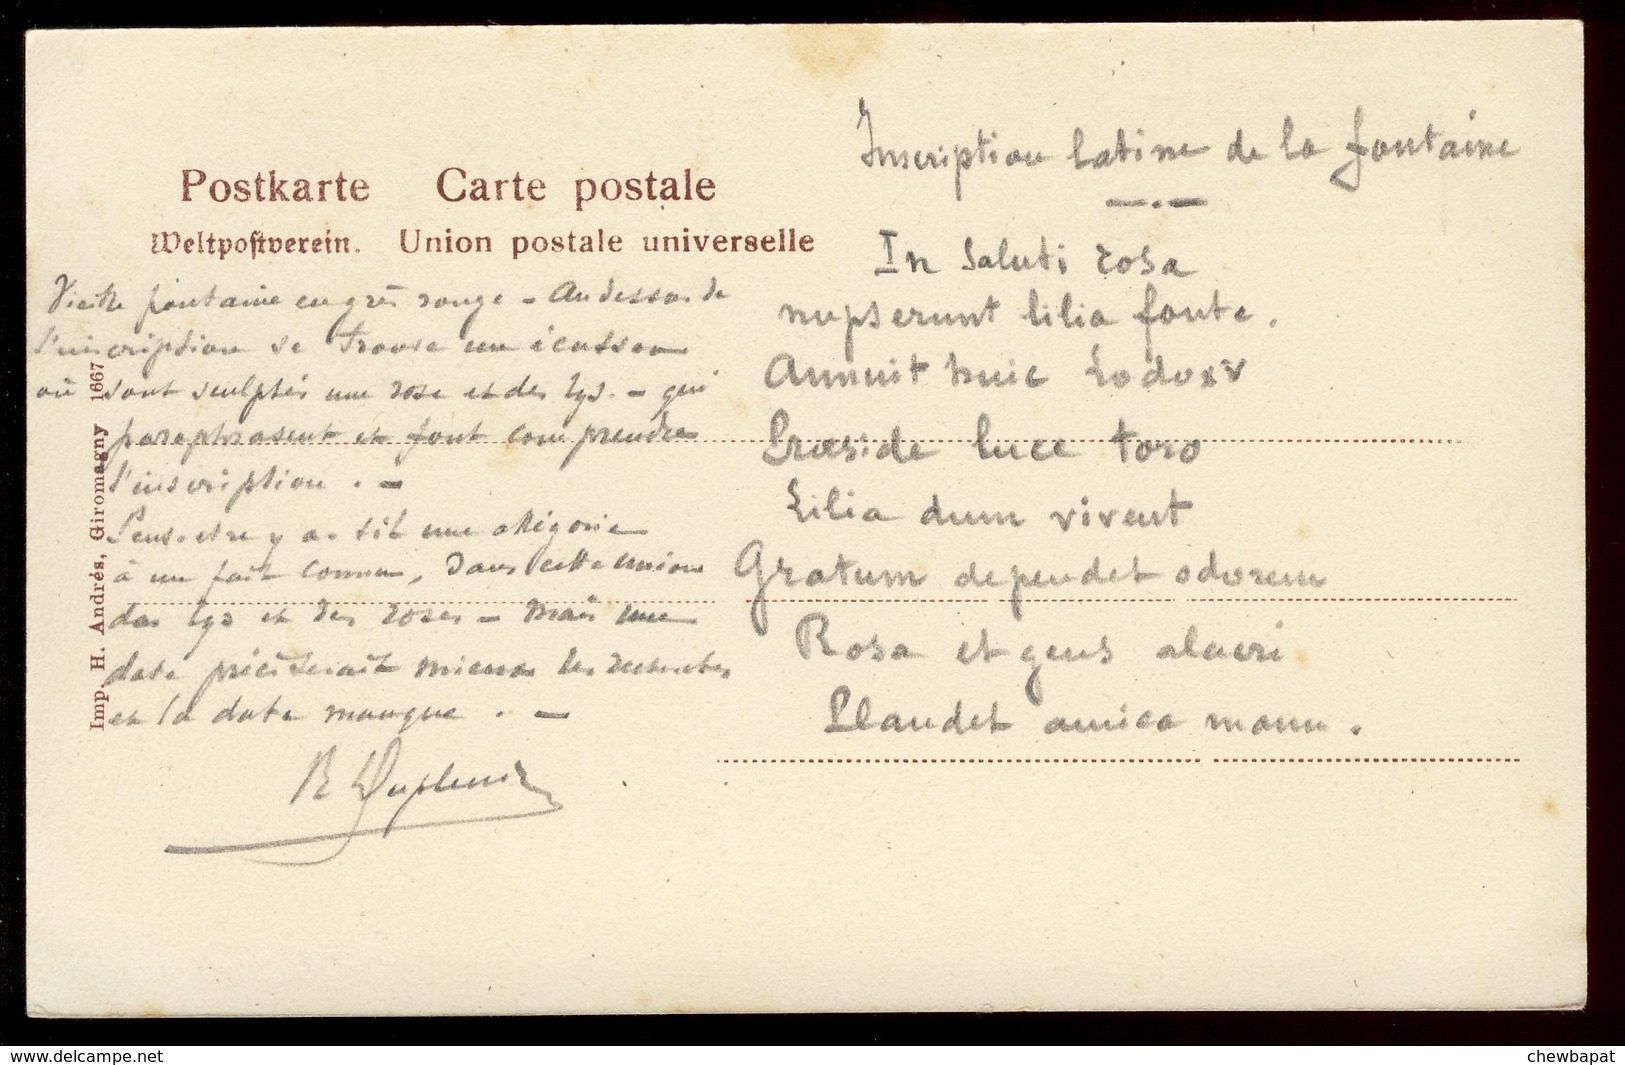 Postkarte Carte postale
Weltpostverein. Union postale universelle
Vieille fontaine en grès rouge - Au dessus de
l'inscription se trouve un écusson
où sont sculptés une rose et des lys. - qui
paraphrasent et font comprendre
l'inscription . -
Peut-etre y a-t-il une allégorie
à un fait connu, dans cette union
des lys et des roses - Mais une
date préciserait mieux les recherches
et la date manque . -
Imp. H. Andrés, Giromagny 1667
Inscription latine de la fontaine
In Saluti rosa
nupserunt lilia fonte.
Annuit huic Lodoxv
Præside luce toro
Lilia dum vivent
Gratum dependet odorem
Rosa et gens alacri
Plaudet amica manu.
chewbapat